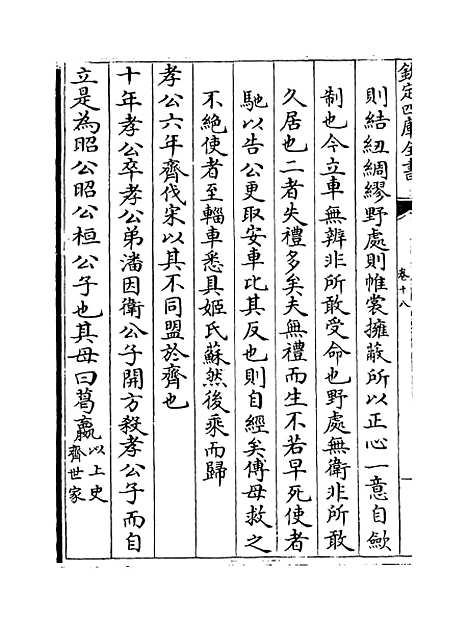 欽定四庫全書
卷十八
則結紐綢繆野處則帷裳擁蔽所以正心一意自斂
制也今立車無輧非所敢受命也野處無衛非所敢
久居也二者失禮多矣夫無禮而生不若早死使者
馳以告公更取安車比其反也則自經矣傅母救之
不絶使者至輜車悉具姬氏蘇然後乘而歸
孝公六年齊伐宋以其不同盟於齊也
十年孝公卒孝公弟潘因衛公子開方殺孝公子而自
立是為昭公昭公桓公子也其母曰葛嬴以上史
齊世家